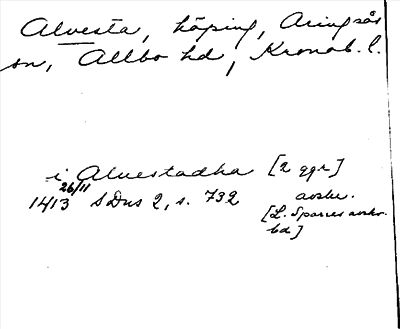 Alvesta, köping, Aringsås
sn, Allbo hd, Kronob. l.
i Alvestadha [2 ggr]
26/11
1413 SDns 2, s. 732 avskr.
[L. Sparres avskr.
bd]